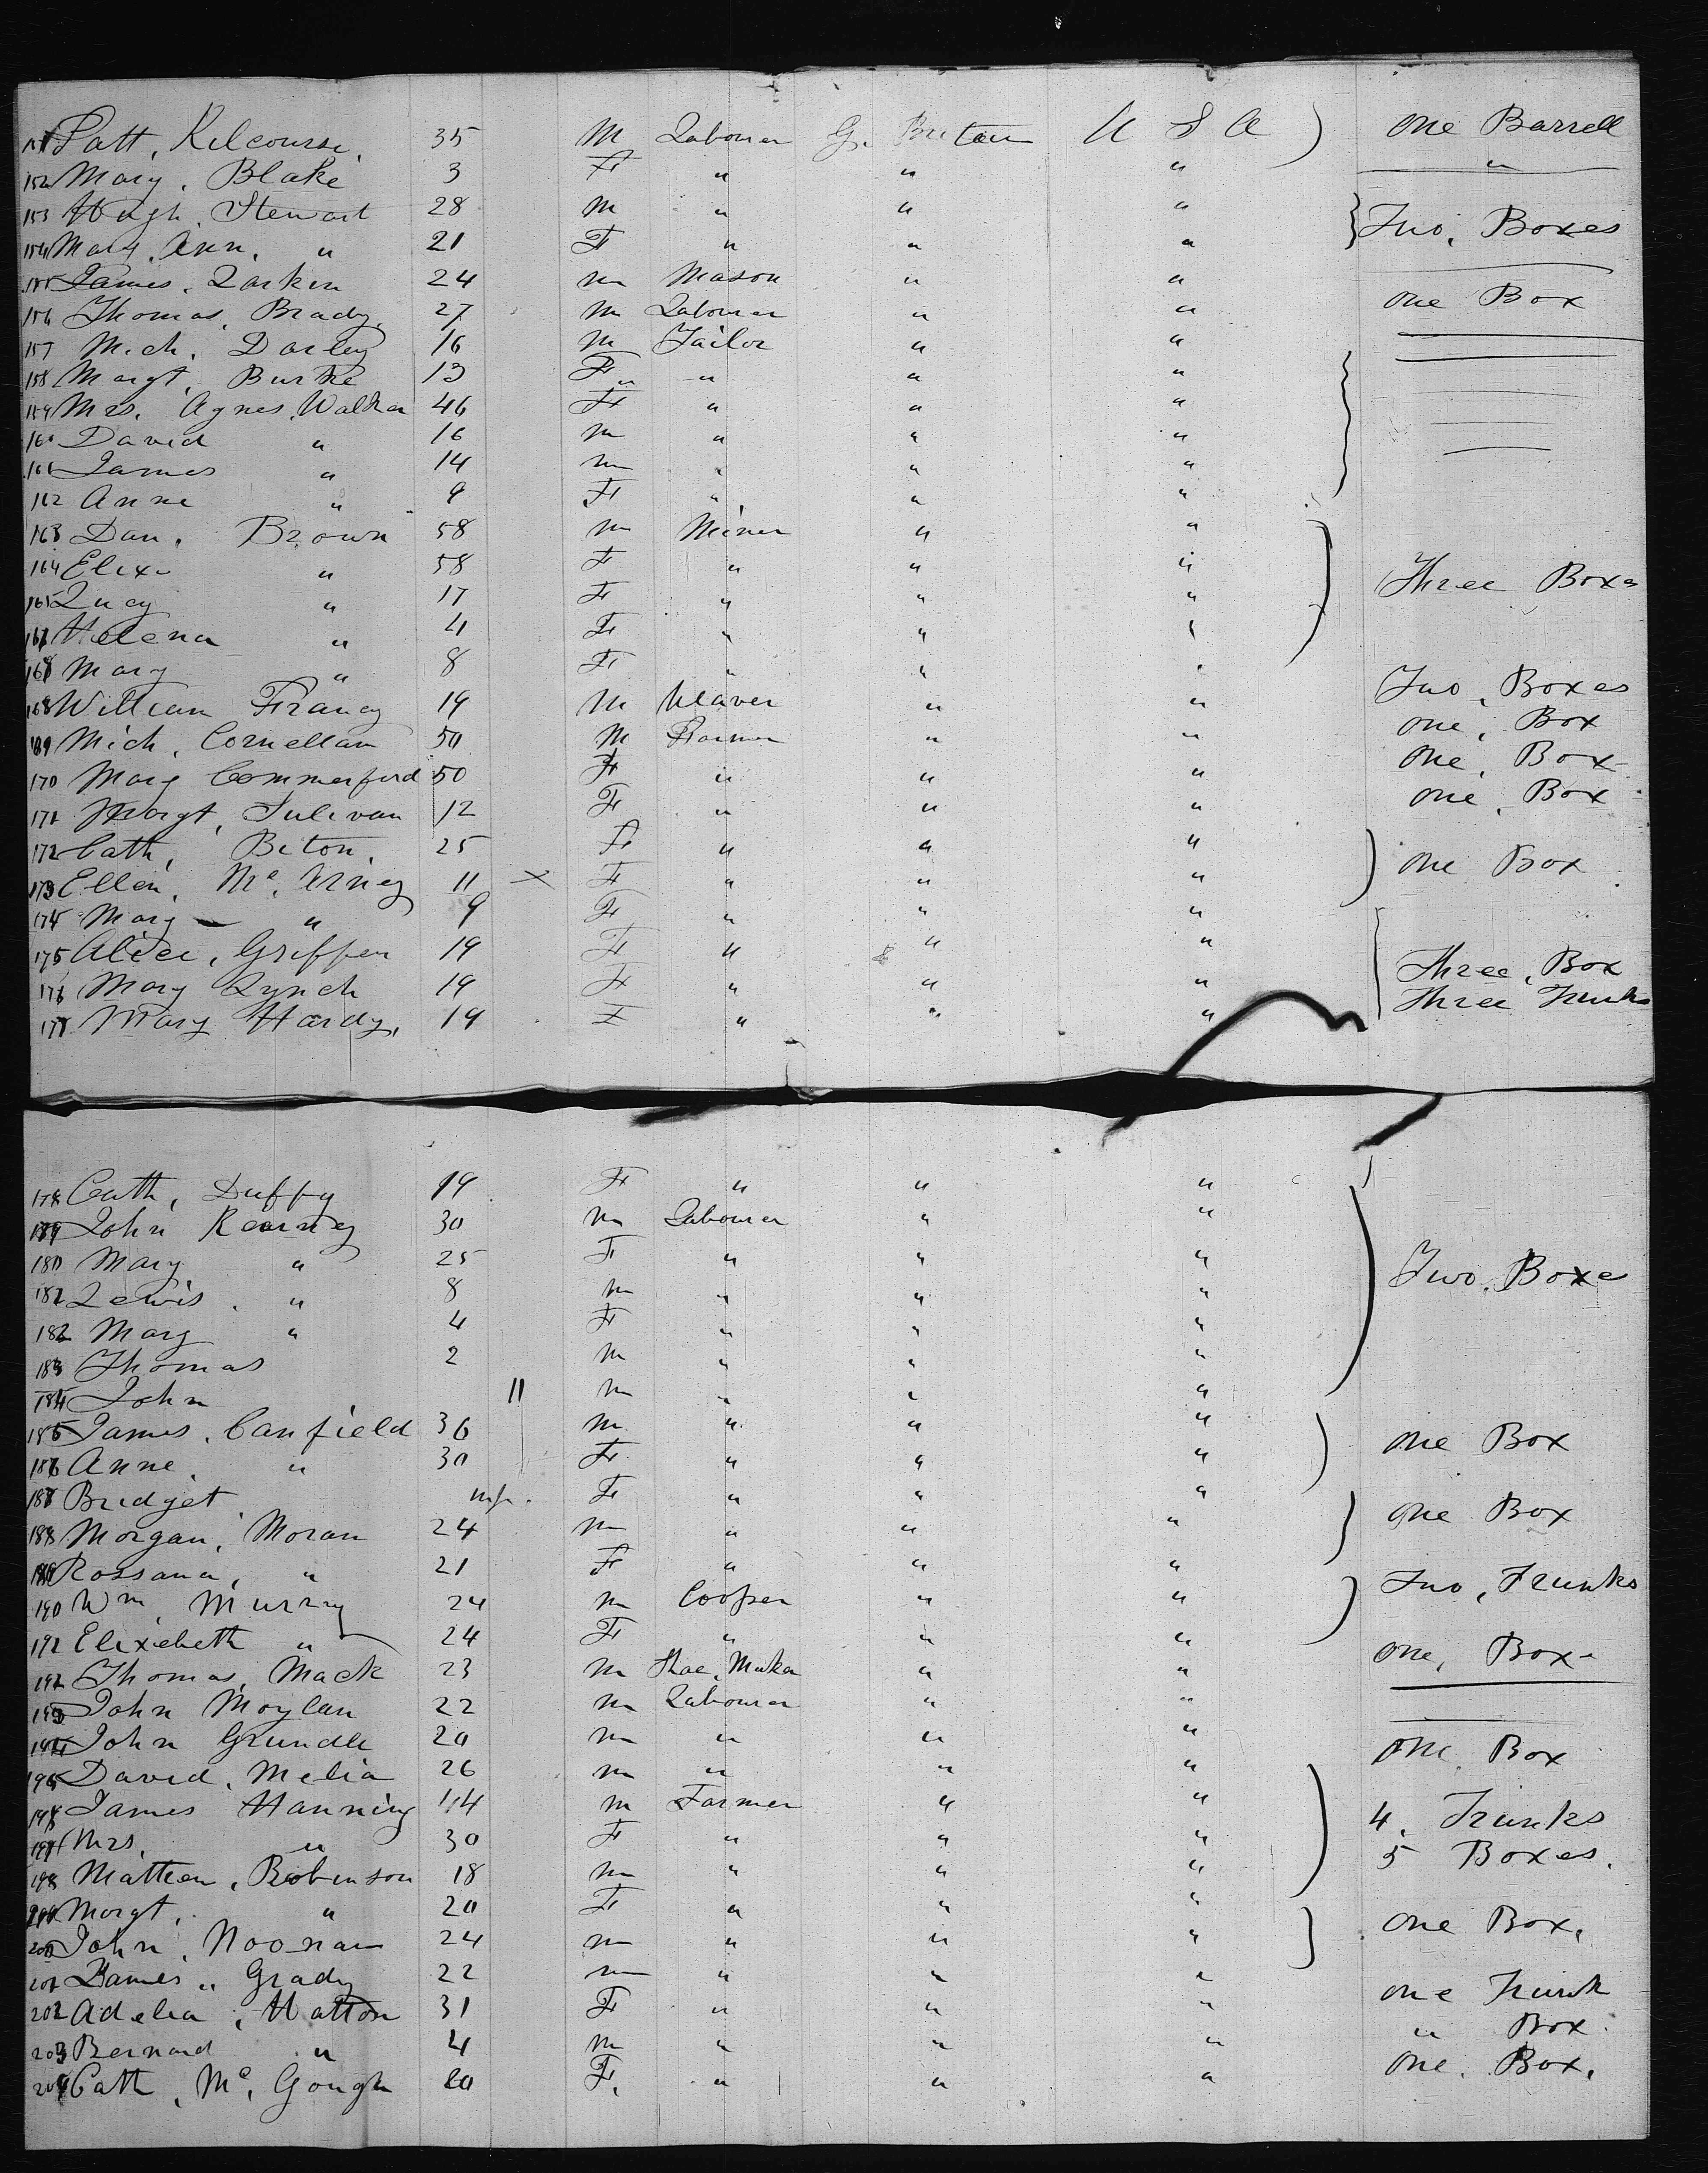 151 Patt, Kilcourse, 35 M Labourer G. Britain U S A ) one Barrell
152 Mary, Blake 3 F " " " "
153 Hugh, Stewart 28 M " " " } Two, Boxes
154 Mary, Ann, " 21 F " " "
155 James, Larkin 24 m Mason " "
156 Thomas, Brady, 27 m Labourer " " one Box
157 Mich, Darley 16 m Tailor " "
158 Margt, Burke 13 F " " "
159 Mrs, Agnes, Walker 46 F " " "
160 David " 16 m " " "
161 James " 14 m " " "
162 Anne " 9 F " " "
163 Dan, Brown 58 m Miner " "
164 Eliza " 58 F " " " Three Boxes
165 Lucy " 17 F " " "
Helena " 4 F " " "
Mary " 8 F " " "
168 William Francy 19 m Weaver " " Two, Boxes
169 Mich, Cornellan 50 M Farmer " " one, Box
170 Mary Commerford 50 F " " " one, Box
171 Margt, Sulivan 12 F " " " one, Box
172 Cath, Biton, 25 F " " "
173 Ellen, Mc Arney 11 x F " " " one Box
174 Mary " 9 F " " "
175 Alice, Griffen 19 F " " "
176 Mary Lynch 19 F " " " Three, Box
177 Mary Hardy, 19 F " " " Three Trunks
178 Cath, Duffy 19 F " " "
179 John Kearney 30 m Labourer " "
180 Mary " 25 F " " "
181 Lewis, " 8 m " " " Two, Boxes
182 Mary " 4 F " " "
183 Thomas 2 m " " "
184 John 11 m " " "
185 James, Canfield 36 m " " " one Box
186 Anne, " 30 F " " "
187 Bridget inf. F " " "
188 Morgan, Moran 24 m " " " one Box
189 Rossana, " 21 F " " "
190 Wm, Murray 24 m Cooper " " Two, Trunks
191 Elizebeth " 24 F " " "
192 Thomas, Mack 23 m Shoe, Maker " " one, Box
193 John Moylan 22 m Labourer " "
194 John Grundle 20 m " " "
195 David, Melia 26 m " " " one Box
196 James Hanning 44 m Farmer " " 4, Trunks
197 Mrs, " 30 F " " " 5 Boxes,
198 Mattew, Robinson 18 m " " "
199 Margt, " 20 F " " "
200 John, Noonan 24 m " " " one Box,
201 James " Grady 22 m " " "
202 Adelia, Hatton 31 F " " " one Trunk
203 Bernard " 4 m " " " " Box
204 Cath, Mc, Gough 20 F, " " " one, Box,